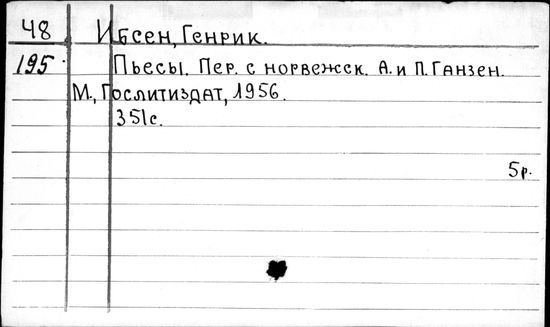 48 Ибсен, Генрик.
195 Пьесы. Пер. с норвежск. А. и П. Ганзен.
М., Гослитиздат, 1956.
351с.
5р.